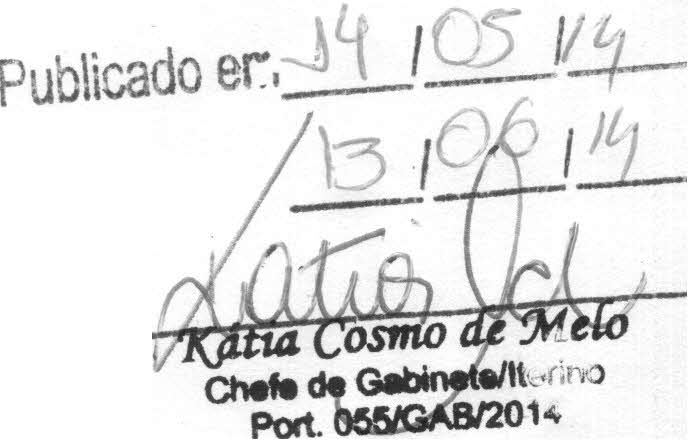 Publicado em 14/05/14
13/06/14
Kátia
Kátia Cosmo de Melo
Chefe de Gabinete/Iterino
Port. 055/GAB/2014